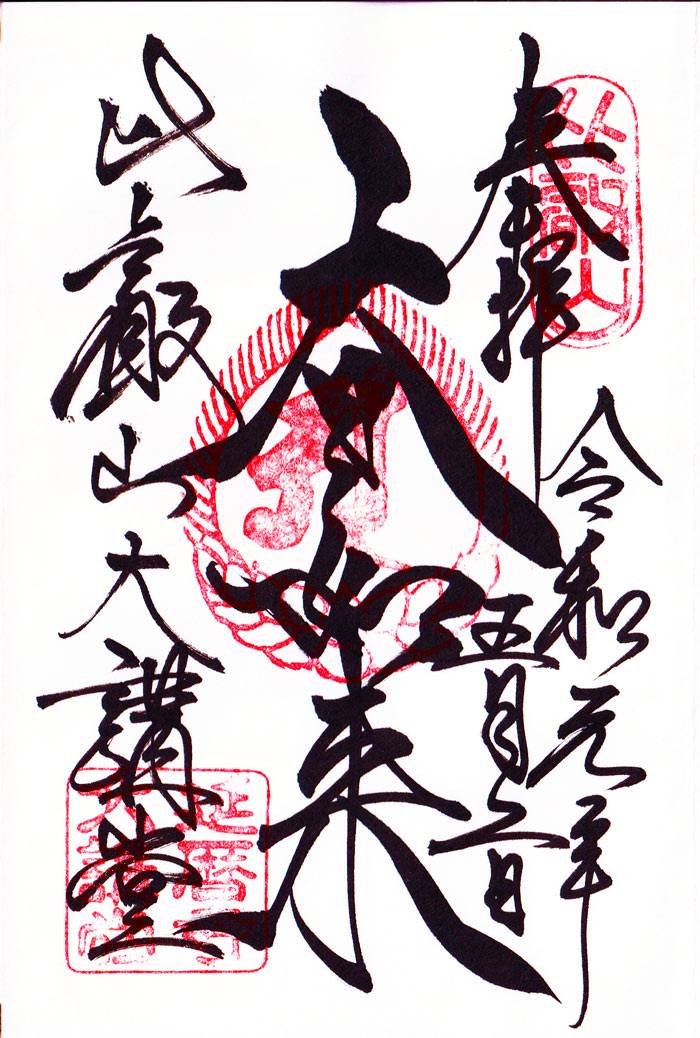 比叡山
奉拝
令和元年
五月二日
大日如来
比叡山大講堂
延暦寺
大講堂